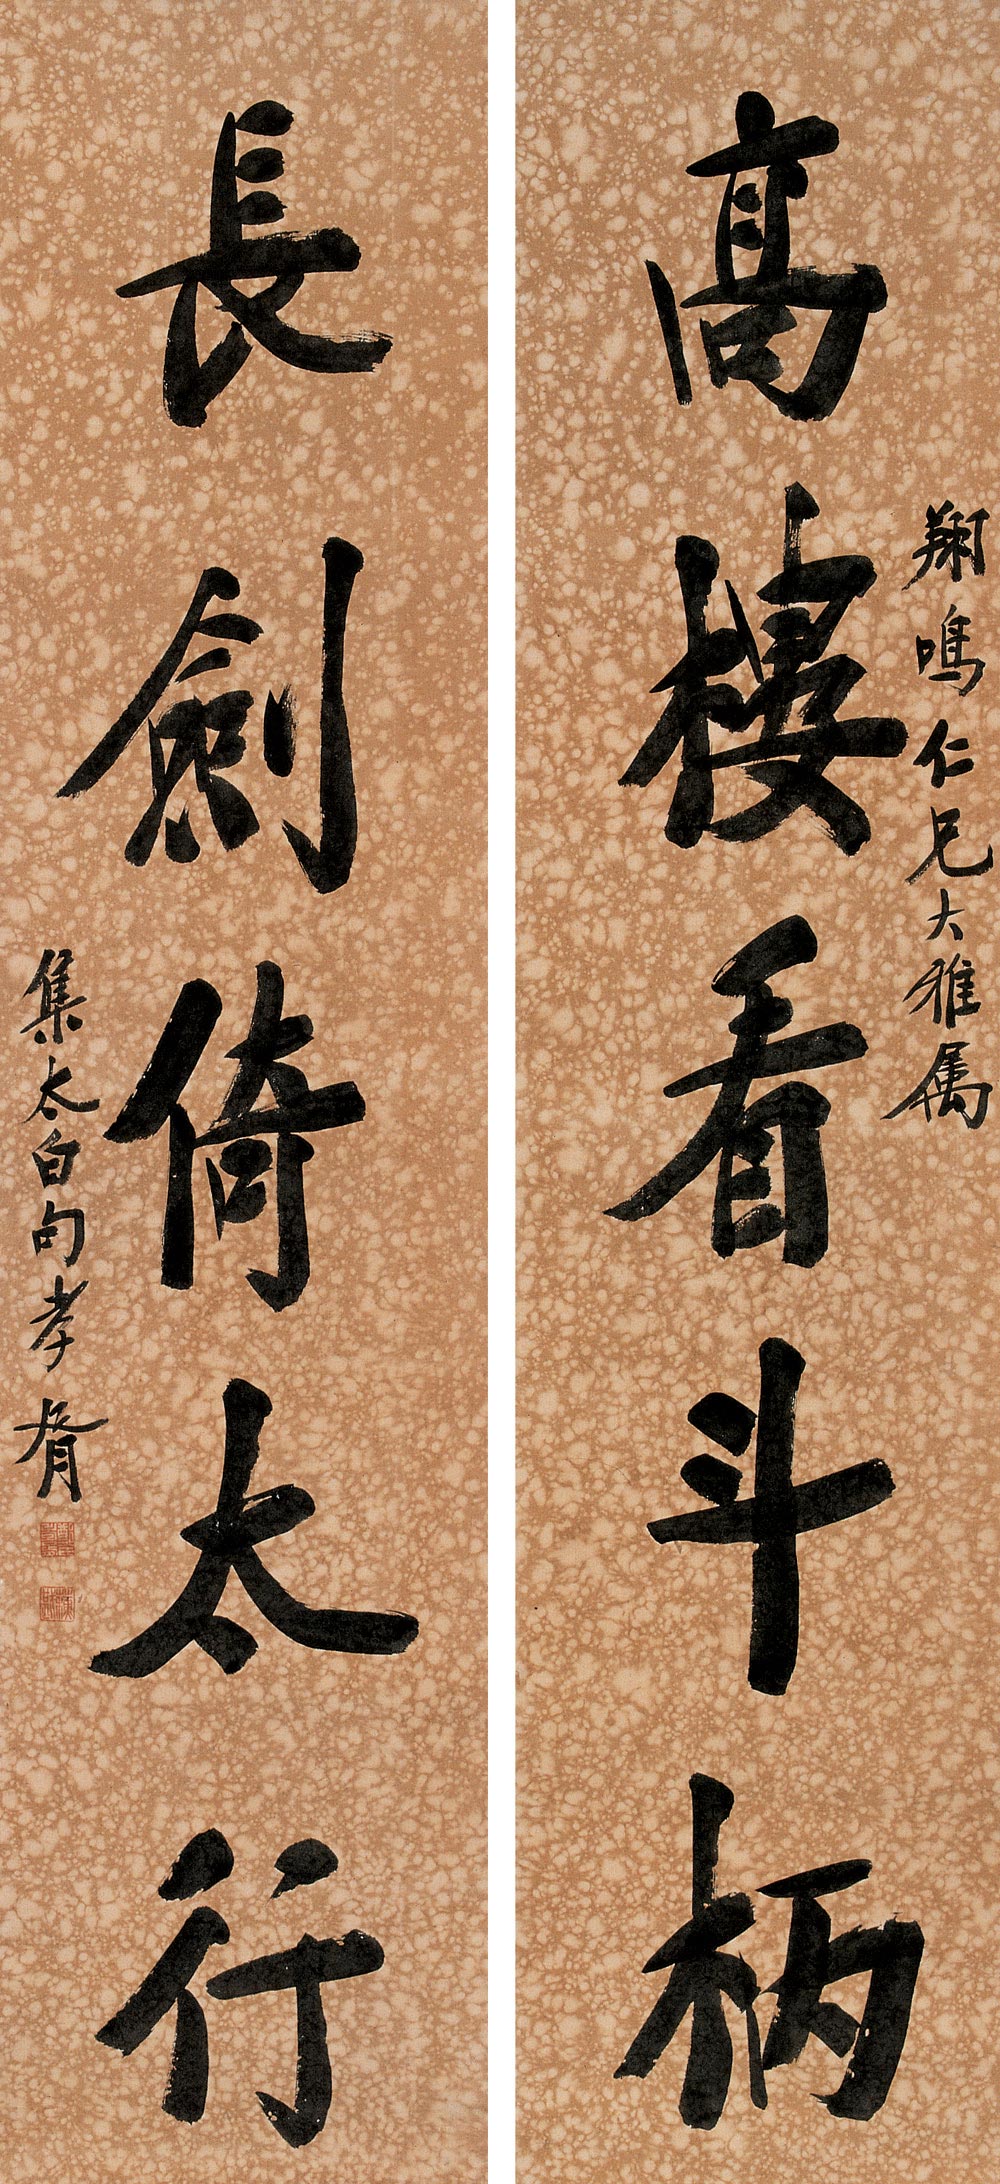 翔鳴仁兄大雅属
高樓看斗柄
長劍倚太行
集太白句孝胥